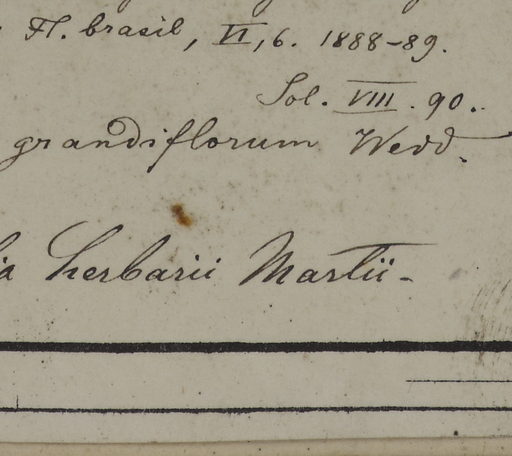 Fl. brasil, VI, 6. 1888-89.
Sol. VIII. 90.
grandiflorum Wedd.
herbarii Martii.